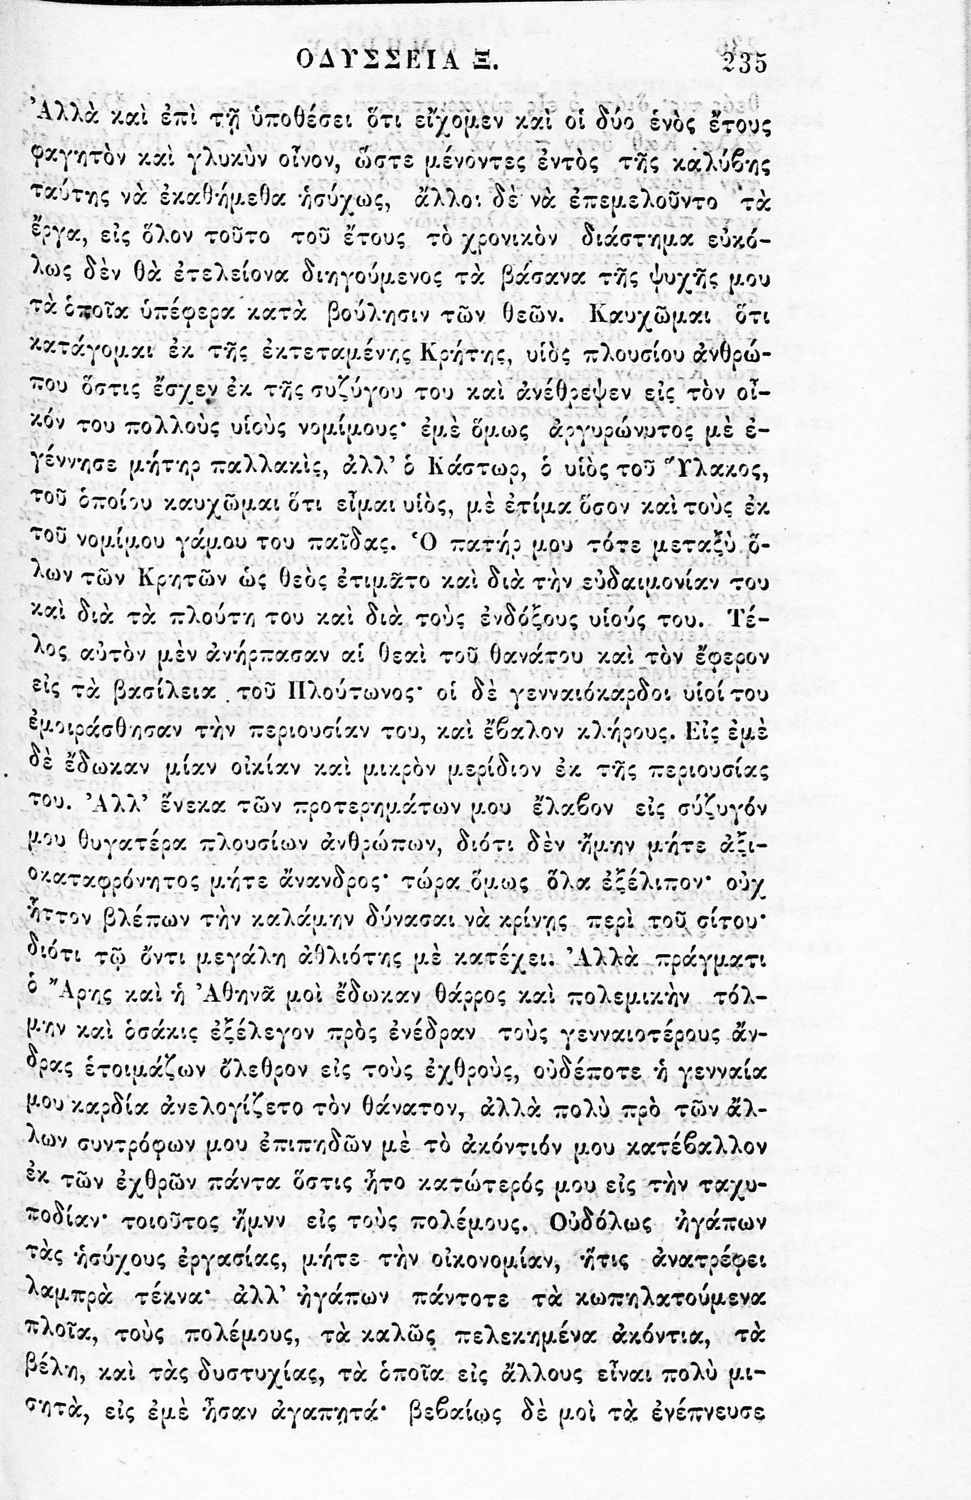 ΟΔΥΣΣΕΙΑ Ξ. 235
Ἀλλὰ καὶ ἐπὶ τῇ ὑποθέσει ὅτι εἴχομεν καὶ οἱ δύο ἑνὸς ἔτους
φαγητὸν καὶ γλυκὺν οἶνον, ὥστε μένοντες ἐντὸς τῆς καλύβης
ταύτης νὰ ἐκαθήμεθα ἡσύχως, ἄλλοι δὲ νὰ ἐπεμελοῦντο τὰ
ἔργα, εἰς ὅλον τοῦτο τοῦ ἔτους τὸ χρονικὸν διάστημα εὐκό-
λως δὲν θὰ ἐτελείονα διηγούμενος τὰ βάσανα τῆς ψυχῆς μου
τὰ ὁποῖα ὑπέφερα κατὰ βούλησιν τῶν θεῶν. Καυχῶμαι ὅτι
κατάγομαι ἐκ τῆς ἐκτεταμένης Κρήτης, υἱὸς πλουσίου ἀνθρώ-
που ὅστις ἔσχεν ἐκ τῆς συζύγου του καὶ ἀνέθρεψεν εἰς τὸν οἶ-
κόν του πολλοὺς υἱοὺς νομίμους· ἐμὲ ὅμως ἀργυρώνυτος μὲ ἐ-
γέννησε μήτηρ παλλακὶς, ἀλλ' ὁ Κάστωρ, ὁ υἱὸς τοῦ Ὕλακος,
τοῦ ὁποίου καυχῶμαι ὅτι εἶμαι υἱὸς, μὲ ἐτίμα ὅσον καὶ τοὺς ἐκ
τοῦ νομίμου γάμου του παῖδας. Ὁ πατήρ μου τότε μεταξὺ ὅ-
λων τῶν Κρητῶν ὡς θεὸς ἐτιμᾶτο καὶ διὰ τὴν εὐδαιμονίαν του
καὶ διὰ τὰ πλούτη του καὶ διὰ τοὺς ἐνδόξους υἱούς του. Τέ-
λος αὐτὸν μὲν ἀνήρπασαν αἱ θεαὶ τοῦ θανάτου καὶ τὸν ἔφερον
εἰς τὰ βασίλεια τοῦ Πλούτωνος· οἱ δὲ γενναιόκαρδοι υἱοί του
ἐμοιράσθησαν τὴν περιουσίαν του, καὶ ἔβαλον κλήρους. Εἰς ἐμὲ
δὲ ἔδωκαν μίαν οἰκίαν καὶ μικρὸν μερίδιον ἐκ τῆς περιουσίας
του. Ἀλλ' ἕνεκα τῶν προτερημάτων μου ἔλαβον εἰς σύζυγόν
μου θυγατέρα πλουσίων ἀνθρώπων, διότι δὲν ἤμην μήτε ἀξι-
οκαταφρόνητος μήτε ἄνανδρος· τώρα ὅμως ὅλα ἐξέλιπον· οὐχ
ἧττον βλέπων τὴν καλάμην δύνασαι νὰ κρίνῃς περὶ τοῦ σίτου·
διότι τῷ ὄντι μεγάλη ἀθλιότης μὲ κατέχει. Ἀλλὰ πράγματι
ὁ Ἄρης καὶ ἡ Ἀθηνᾶ μοὶ ἔδωκαν θάρρος καὶ πολεμικὴν τόλ-
μην καὶ ὁσάκις ἐξέλεγον πρὸς ἐνέδραν τοὺς γενναιοτέρους ἄν-
δρας ἑτοιμάζων ὄλεθρον εἰς τοὺς ἐχθροὺς, οὐδέποτε ἡ γενναία
μου καρδία ἀνελογίζετο τὸν θάνατον, ἀλλὰ πολὺ πρὸ τῶν ἄλ-
λων συντρόφων μου ἐπιπηδῶν μὲ τὸ ἀκόντιόν μου κατέβαλλον
ἐκ τῶν ἐχθρῶν πάντα ὅστις ἦτο κατώτερός μου εἰς τὴν ταχυ-
ποδίαν· τοιοῦτος ἤμνν εἰς τοὺς πολέμους. Οὐδόλως ἠγάπων
τὰς ἡσύχους ἐργασίας, μήτε τὴν οἰκονομίαν, ἥτις ἀνατρέφει
λαμπρὰ τέκνα· ἀλλ' ἠγάπων πάντοτε τὰ κωπηλατούμενα
πλοῖα, τοὺς πολέμους, τὰ καλῶς πελεκημένα ἀκόντια, τὰ
βέλη, καὶ τὰς δυστυχίας, τὰ ὁποῖα εἰς ἄλλους εἶναι πολὺ μι-
σητὰ, εἰς ἐμὲ ἦσαν ἀγαπητά· βεβαίως δὲ μοὶ τὰ ἐνέπνευσε